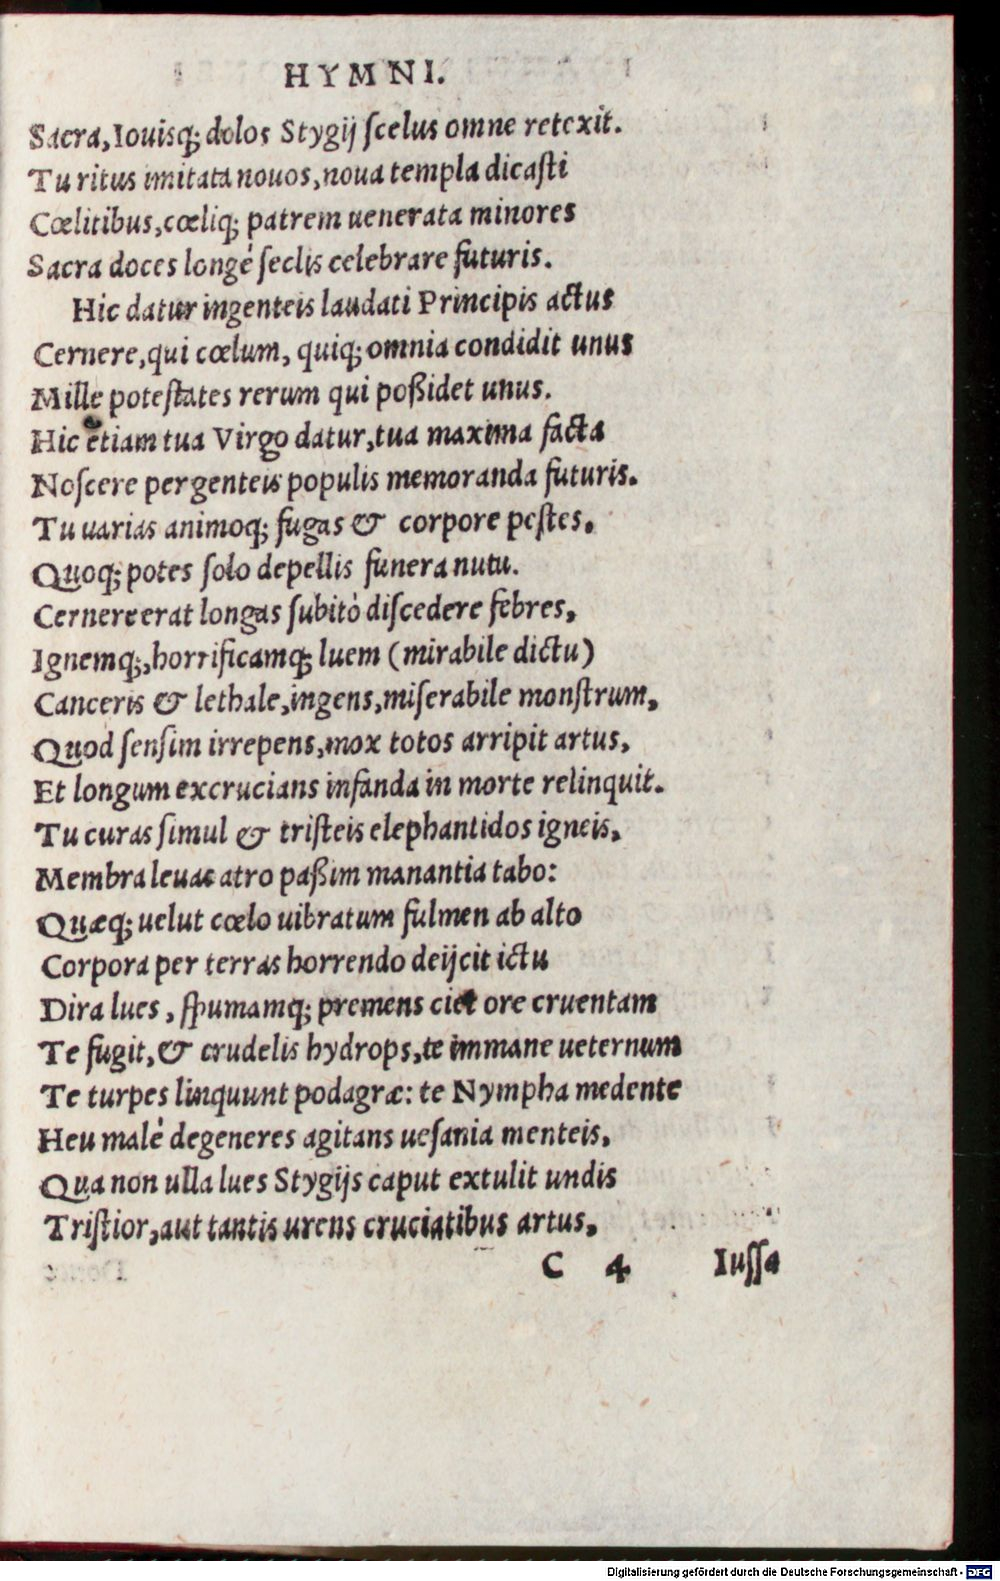 HYMNI.
Sacra, Iouisq; dolos Stygij ſcelus omne retexit.
Tu ritus imitata nouos, noua templa dicaſti
Cœlitibus, cœliq; patrem uenerata minores
Sacra doces longè ſeclis celebrare futuris.
Hic datur ingenteis laudati Principis actus
Cernere, qui cœlum, quiq; omnia condidit unus
Mille poteſtates rerum qui poßidet unus.
Hic etiam tua Virgo datur, tua maxima facta
Noſcere pergenteis populis memoranda futuris.
Tu uarias animoq; fugas & corpore peſtes,
Quoq; potes ſolo depellis funera nutu.
Cernere erat longas ſubitò diſcedere febres,
Ignemq;, horrificamq; luem (mirabile dictu)
Canceris & lethale, ingens, miſerabile monſtrum,
Quod ſenſim irrepens, mox totos arripit artus,
Et longum excrucians infanda in morte relinquit.
Tu curas ſimul & triſteis elephantidos igneis,
Membra leuas atro paßim manantia tabo:
Quæq; uelut cœlo uibratum fulmen ab alto
Corpora per terras horrendo deijcit ictu
Dira lues, ſpumamq; premens ciet ore cruentam
Te fugit, & crudelis hydrops, te immane ueternum
Te turpes linquunt podagræ: te Nympha medente
Heu malè degeneres agitans ueſania menteis,
Qua non ulla lues Stygijs caput extulit undis
Triſtior, aut tantis urens cruciatibus artus,
C 4 Iuſſa
Digitalisierung gefördert durch die Deutsche Forschungsgemeinschaft - DFG